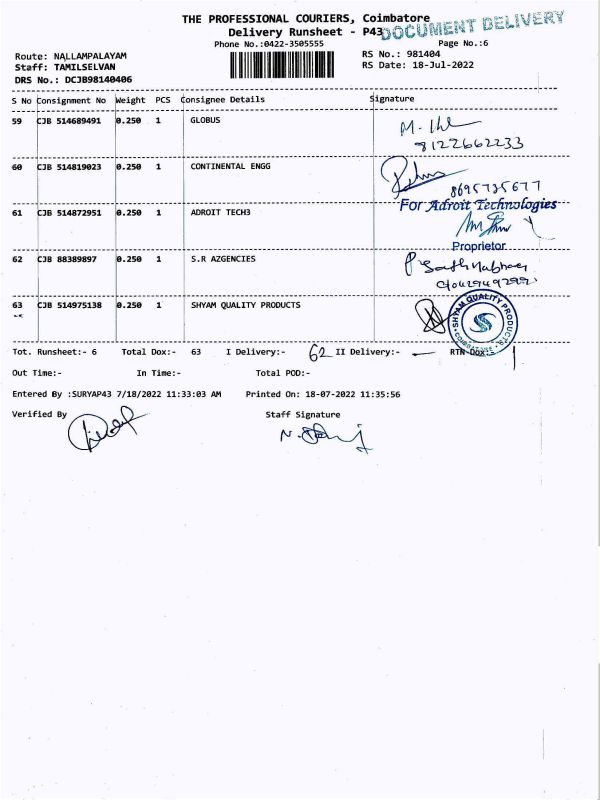 THE PROFESSIONAL COURIERS, Coimbatore
DOCUMENT DELIVERY
Delivery Runsheet - P43
Phone No.:0422-3505555
Page No.:6
Route: NALLAMPALAYAM
RS No.: 981404
Staff: TAMILSELVAN
RS Date: 18-Jul-2022
DRS No.: DCJB98140406
S No Consignment No Weight PCS Consignee Details Signature
59 CJB 514689491 0.250 1 GLOBUS
8122662233
60 CJB 514819023 0.250 1 CONTINENTAL ENGG
8695735677
For Adroit Technologies
61 CJB 514872951 0.250 1 ADROIT TECH3
Proprietor
62 CJB 88389897 0.250 1 S.R AZGENCIES
63 CJB 514975138 0.250 1 SHYAM QUALITY PRODUCTS
SHYAM QUALITY PRODUCTS
COIMBATORE
Tot. Runsheet:- 6 Total Dox:- 63 I Delivery:- 62 II Delivery:- — RTN Dox:- 1
Out Time:- In Time:- Total POD:-
Entered By :SURYAP43 7/18/2022 11:33:03 AM Printed On: 18-07-2022 11:35:56
Verified By Staff Signature